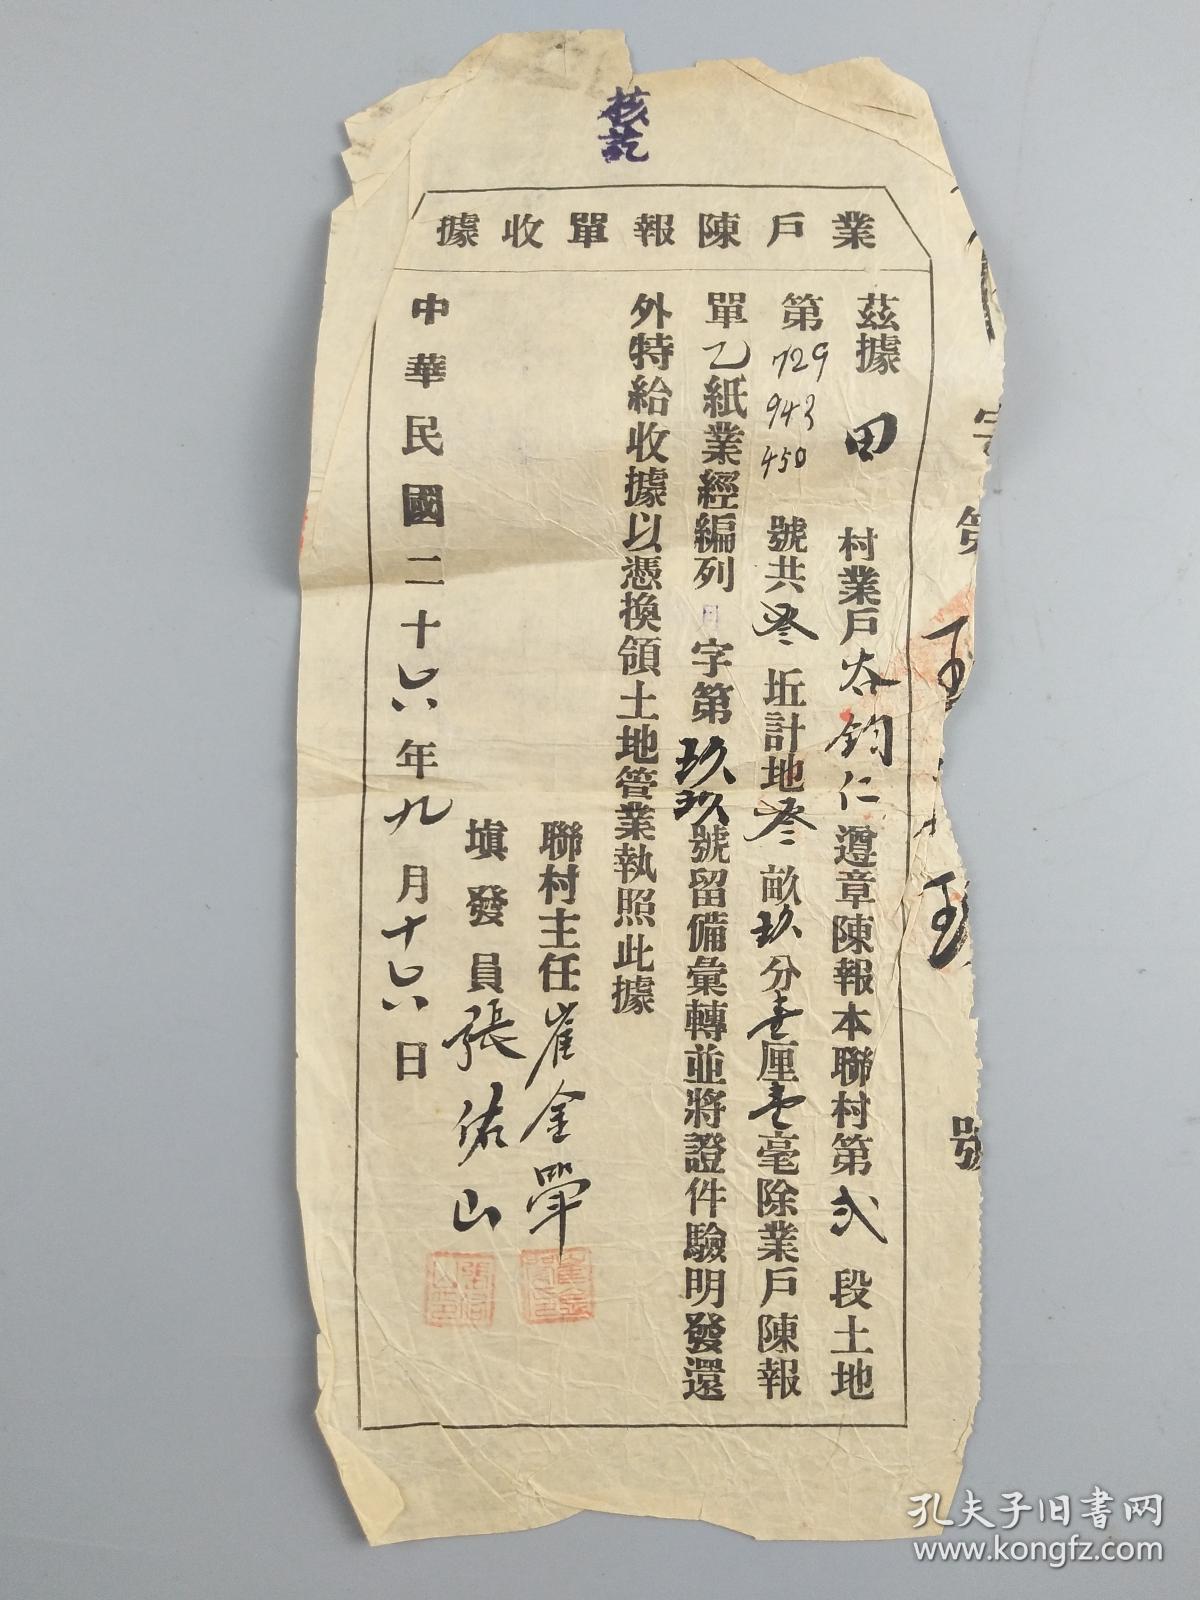 核訖
業戶陳報單收據
茲據田村業戶谷鈞仁遵章陳報本聯村第弍段土地
第729 943 450號共叁坵計地叁畝玖分壹厘壹毫除業戶陳報
單乙紙業經編列字第玖玖號留備彙轉並將證件驗明發還
外特給收據以憑換領土地管業執照此據
聯村主任崔金
填發員張佑山
中華民國二十六年九月十六日
字第
號
孔夫子旧书网
www.kongfz.com